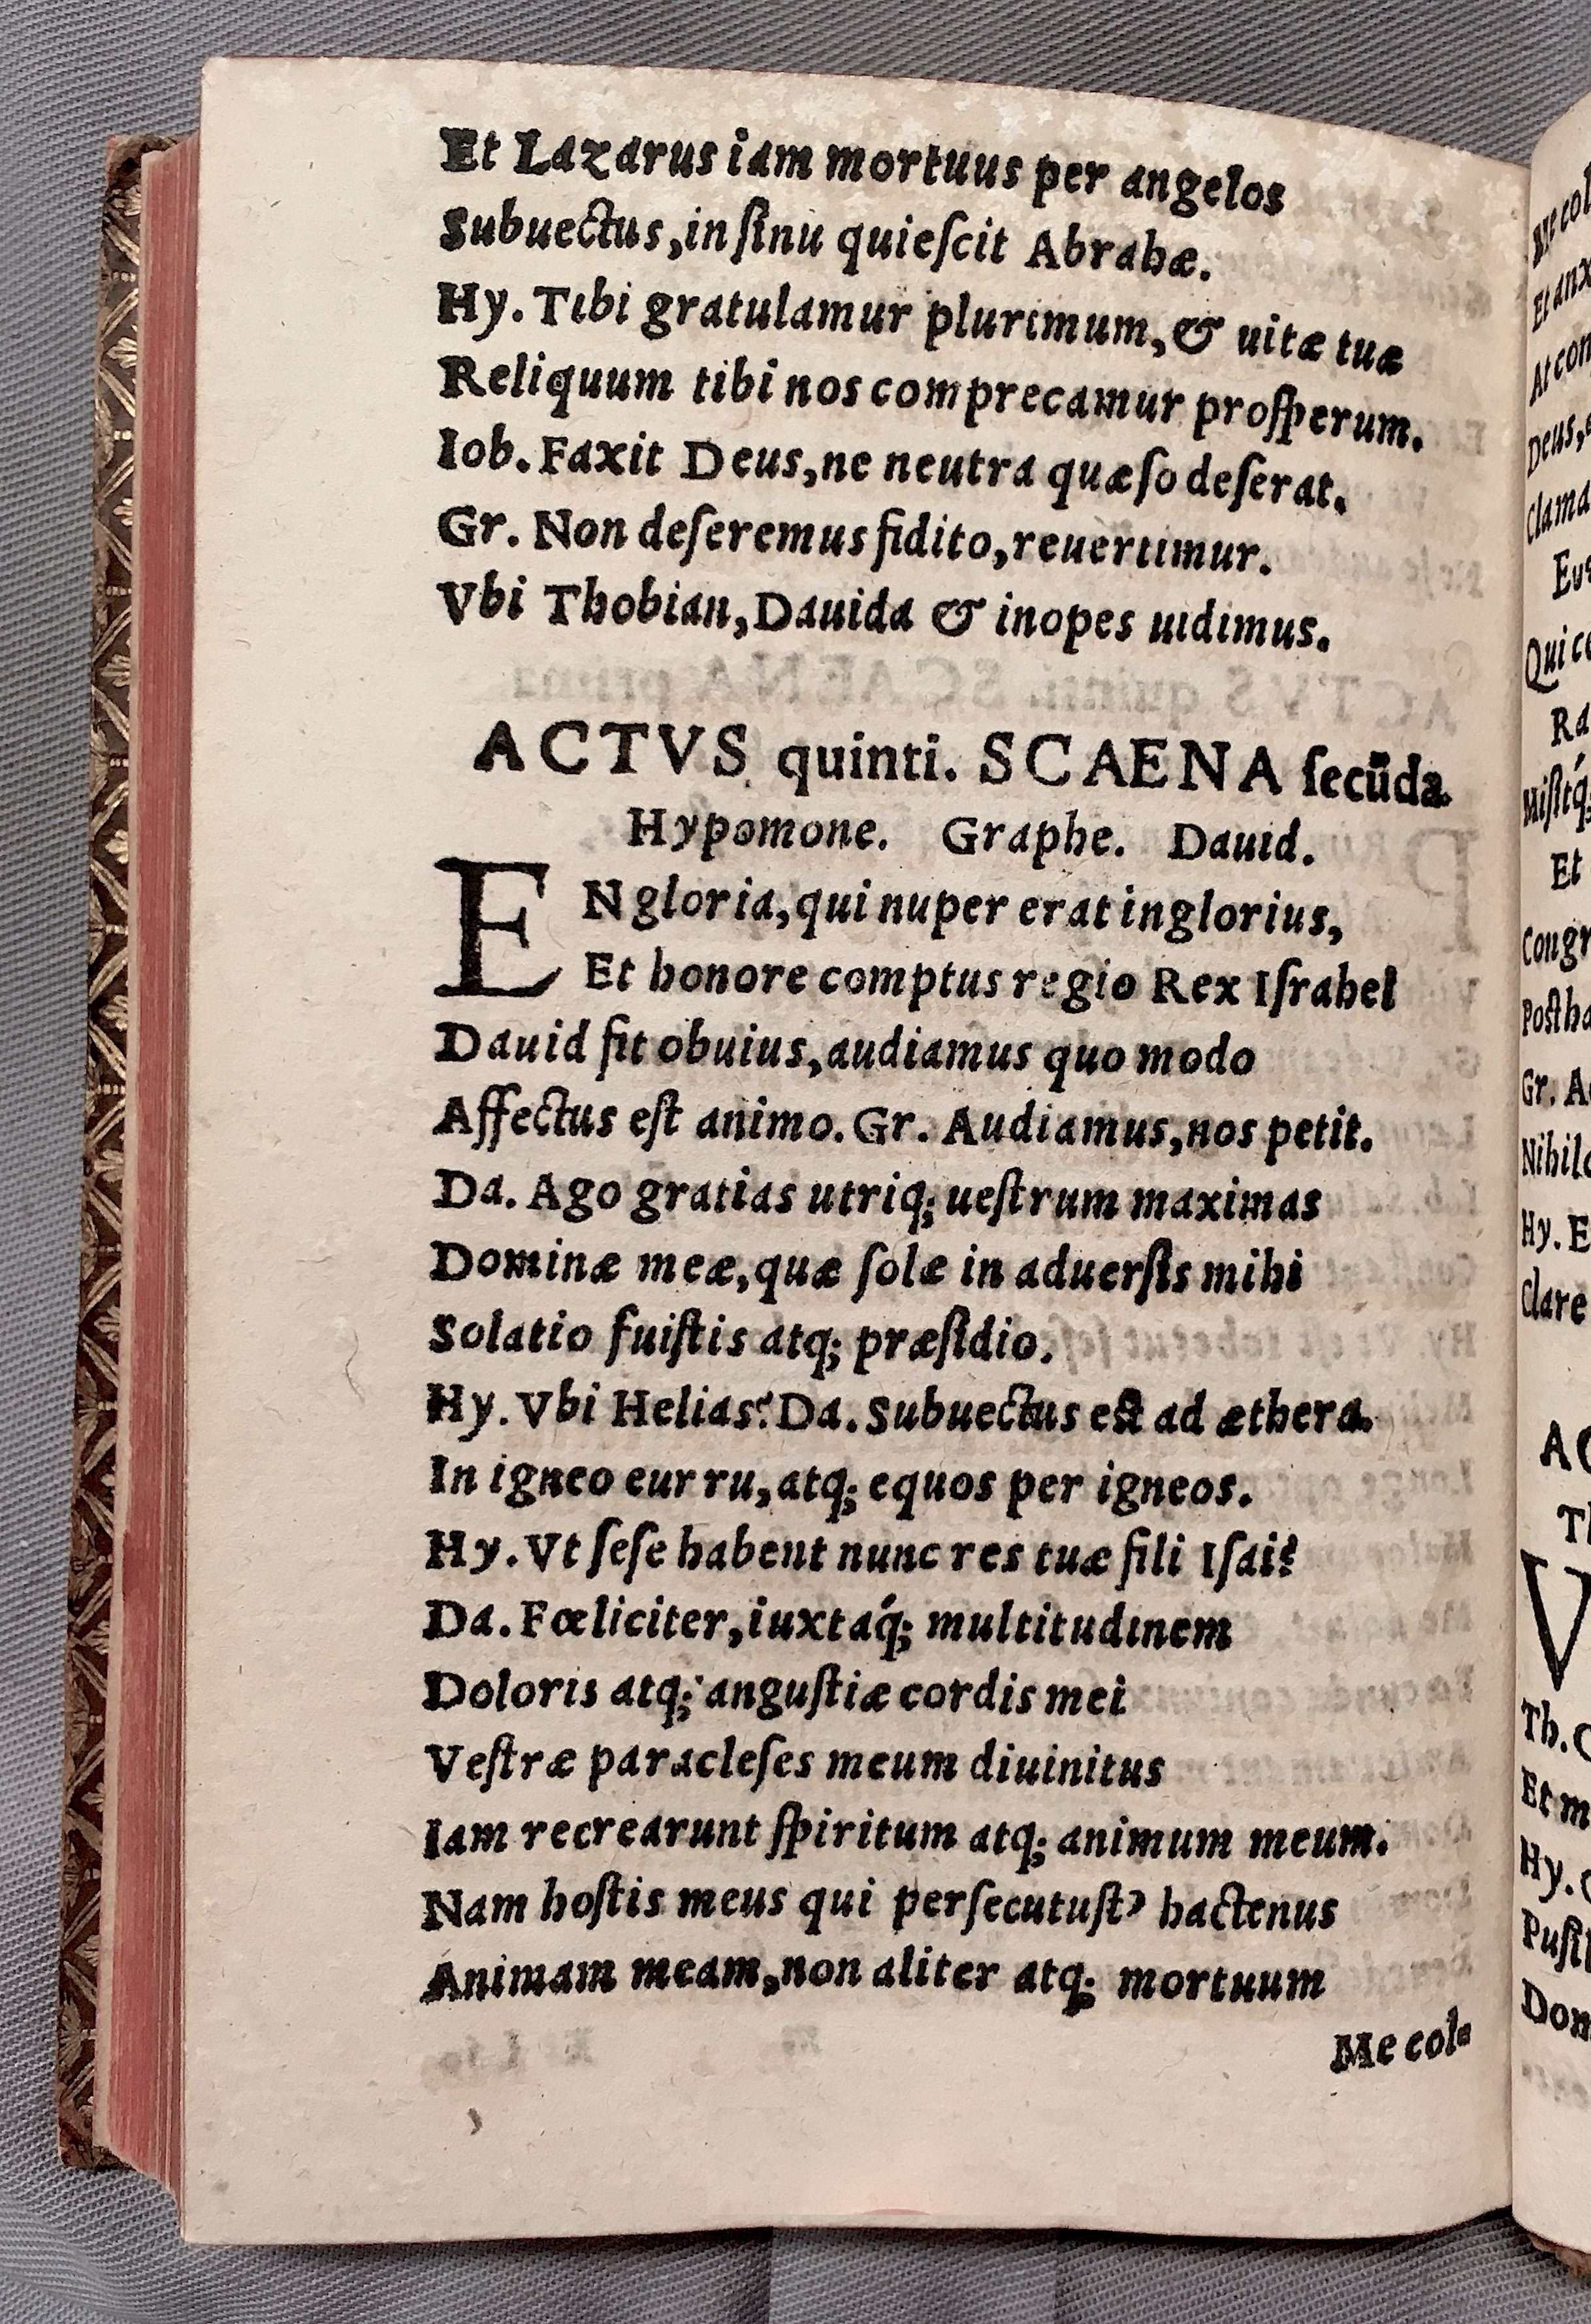 Et Lazarus iam mortuus per angelos
Subuectus, in ſinu quieſcit Abrahæ.
Hy. Tibi gratulamur plurimum, & uitæ tuæ
Reliquum tibi nos comprecamur proſperum.
Iob. Faxit Deus, ne neutra quæſo deſerat.
Gr. Non deſeremus fidito, reuertimur.
Vbi Thobian, Dauida & inopes uidimus.
ACTVS quinti. SCAENA ſecūda.
Hypomone. Graphe. Dauid.
EN gloria, qui nuper erat inglorius,
Et honore comptus regio Rex Iſrahel
Dauid fit obuius, audiamus quo modo
Affectus eſt animo. Gr. Audiamus, nos petit.
Da. Ago gratias utriq; ueſtrum maximas
Dominæ meæ, quæ ſolæ in aduerſis mihi
Solatio fuiſtis atq; præſidio.
Hy. Vbi Helias? Da. Subuectus eſt ad æthera.
In igneo eurru, atq; equos per igneos.
Hy. Vt ſeſe habent nunc res tuæ fili Iſai?
Da. Fœliciter, iuxtaq́; multitudinem
Doloris atq; anguſtiæ cordis mei
Veſtræ paracleſes meum diuinitus
Iam recrearunt ſpiritum atq; animum meum.
Nam hoſtis meus qui perſecutuſt' hactenus
Animam meam, non aliter atq; mortuum
Me col-
Me col
Et anx
At con
Deus,
Clama
Qui ce
Ra
Miſitq́;
Et
Congr
Poſtha
Gr. A
Hy. E
Clare
AC
Th
V
Th. C
Et m
Hy.
Puſil
Dom